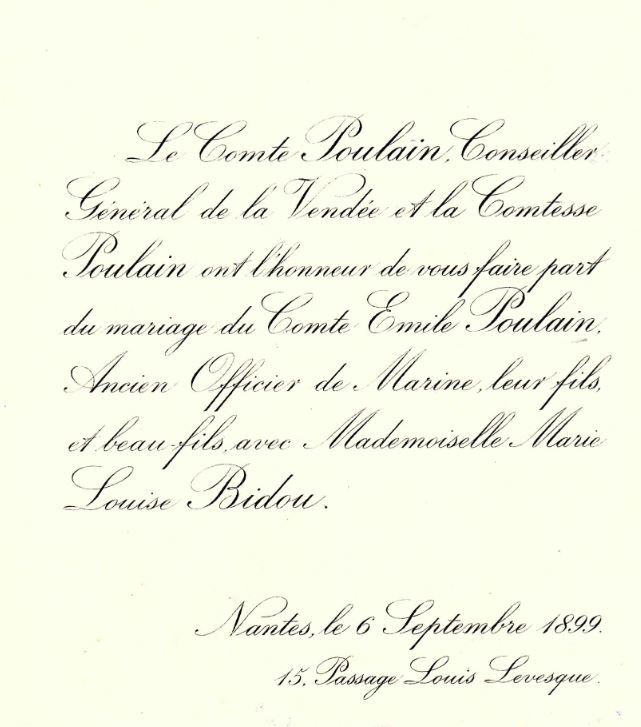 Le Comte Poulain, Conseiller
Général de la Vendée et la Comtesse
Poulain ont l'honneur de vous faire part
du mariage du Comte Emile Poulain,
Ancien Officier de Marine, leur fils,
et beau-fils, avec Mademoiselle Marie
Louise Bidou.
Nantes, le 6 Septembre 1899.
15, Passage Louis Levesque.